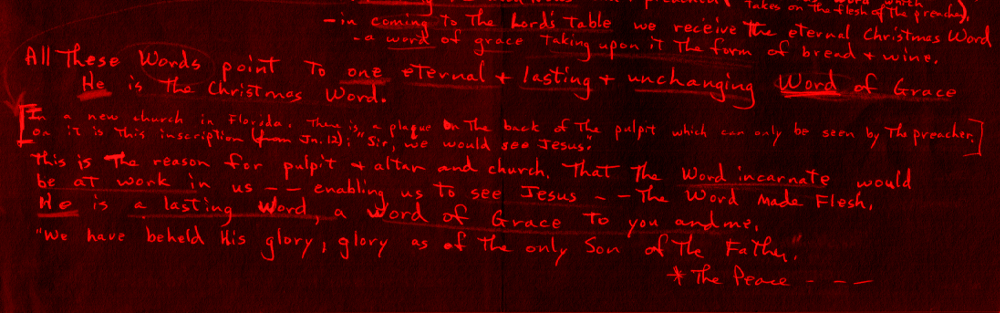 takes on the flesh of the preacher).
- in coming to The Lord's Table we receive the eternal Christmas Word
- a word of grace taking upon it The form of bread + wine.
All These Words point To one eternal + lasting + unchanging Word of Grace
He is The Christmas Word.
[In a new church in Florida. There is a plaque on The back of The pulpit which can only be seen by The preacher.]
On it is This inscription (from Jn. 12): "Sir, we would see Jesus."
This is The reason for pulpit + altar and church. That The Word incarnate would
be at work in us -- enabling us To see Jesus -- The Word Made Flesh.
He is a lasting Word, a Word of Grace To you and me.
"We have beheld His glory, glory as of The only Son of The Father."
* The Peace - - -